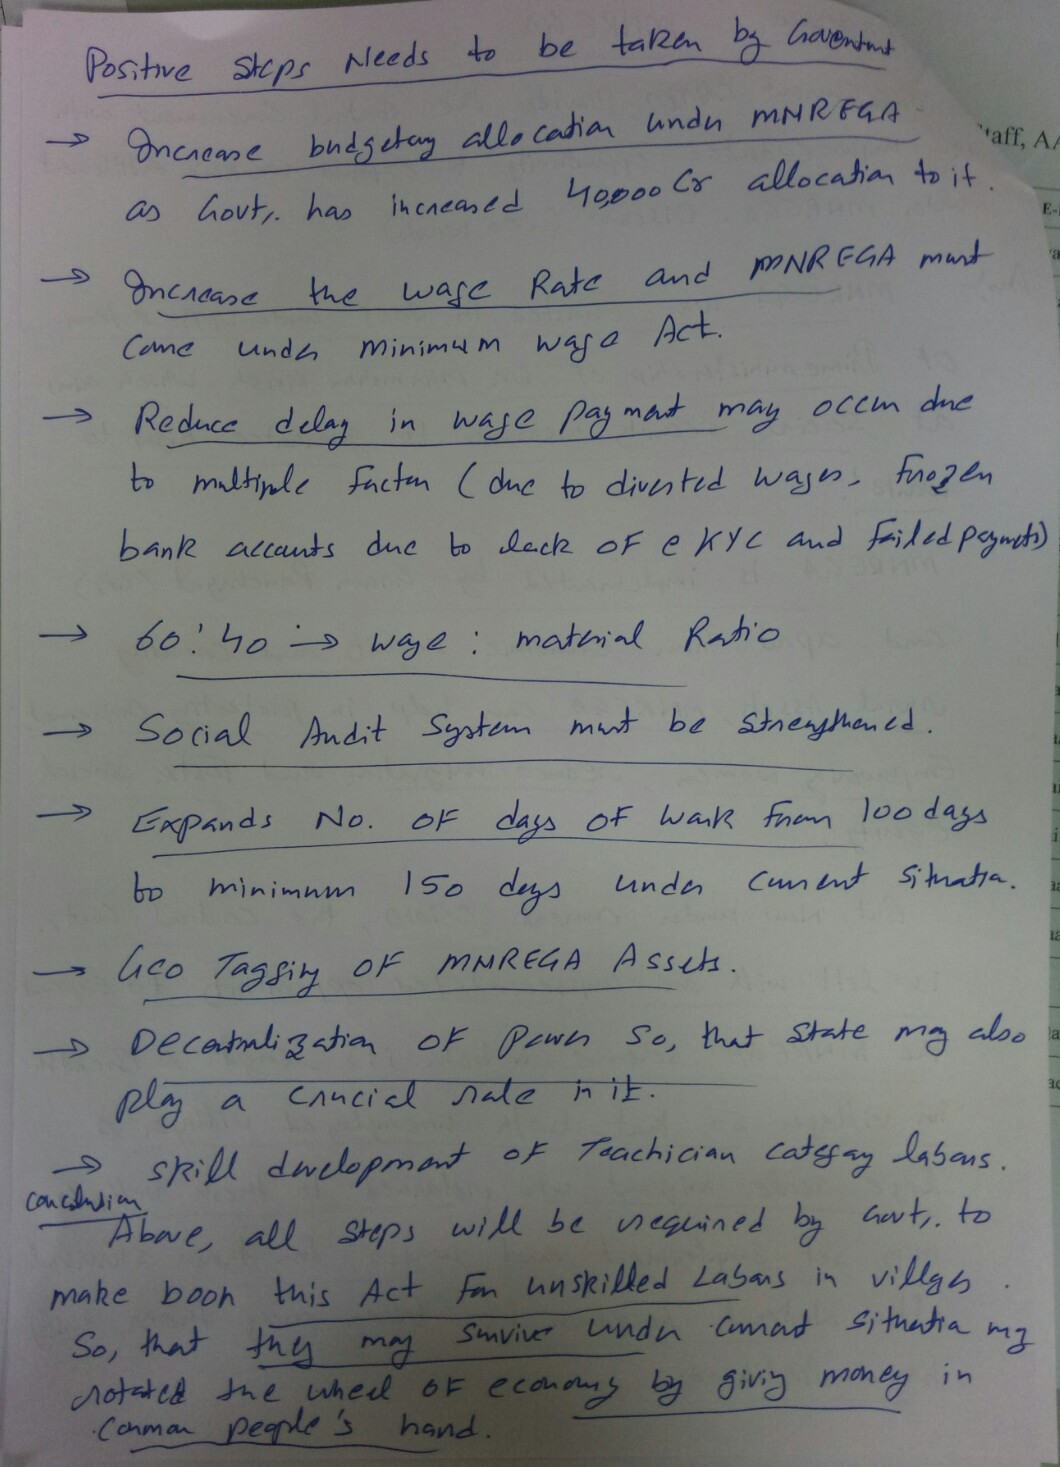 Positive Steps Needs to be taken by Government
→ Increase budgetary allocation under MNREGA
as Govt. has increased 40,000 Cr allocation to it.
→ Increase the wage Rate and MNREGA must
come under minimum wage Act.
→ Reduce delay in wage payment may occur due
to multiple factor (due to diverted wages, frozen
bank accounts due to lack of eKYC and Failed payments)
→ 60:40 → wage : material Ratio
→ Social Audit System must be strengthened.
→ Expands No. of days of work from 100 days
to minimum 150 days under current situation.
→ Geo Tagging of MNREGA Assets.
→ Decentralization of power so, that state may also
play a crucial role in it.
→ skill development of category labours.
Conclusion
Above, all steps will be required by Govt. to
make boon this Act for unskilled Labours in
So, that they may survive under current situation
the wheel of economy by giving money in
common people's hand.
taff, A
E-